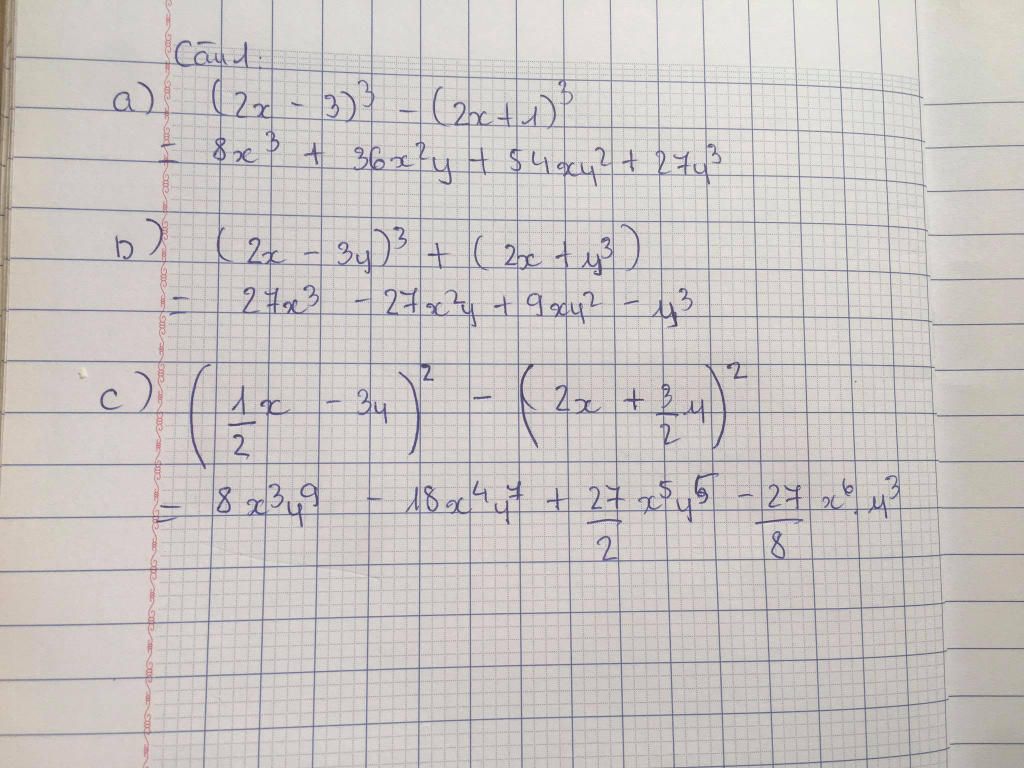 Câu 1:
a) (2x - 3)³ - (2x + 1)³
= 8x³ + 36x²y + 54xy² + 27y³
b) (2x - 3y)³ + (2x + y³)
= 27x³ - 27x²y + 9xy² - y³
c) (1/2 x - 3y)² - (2x + 3/2 y)²
= 8x³y⁹ - 18x⁴y⁷ + 27/2 x⁵y⁵ - 27/8 x⁶.y³